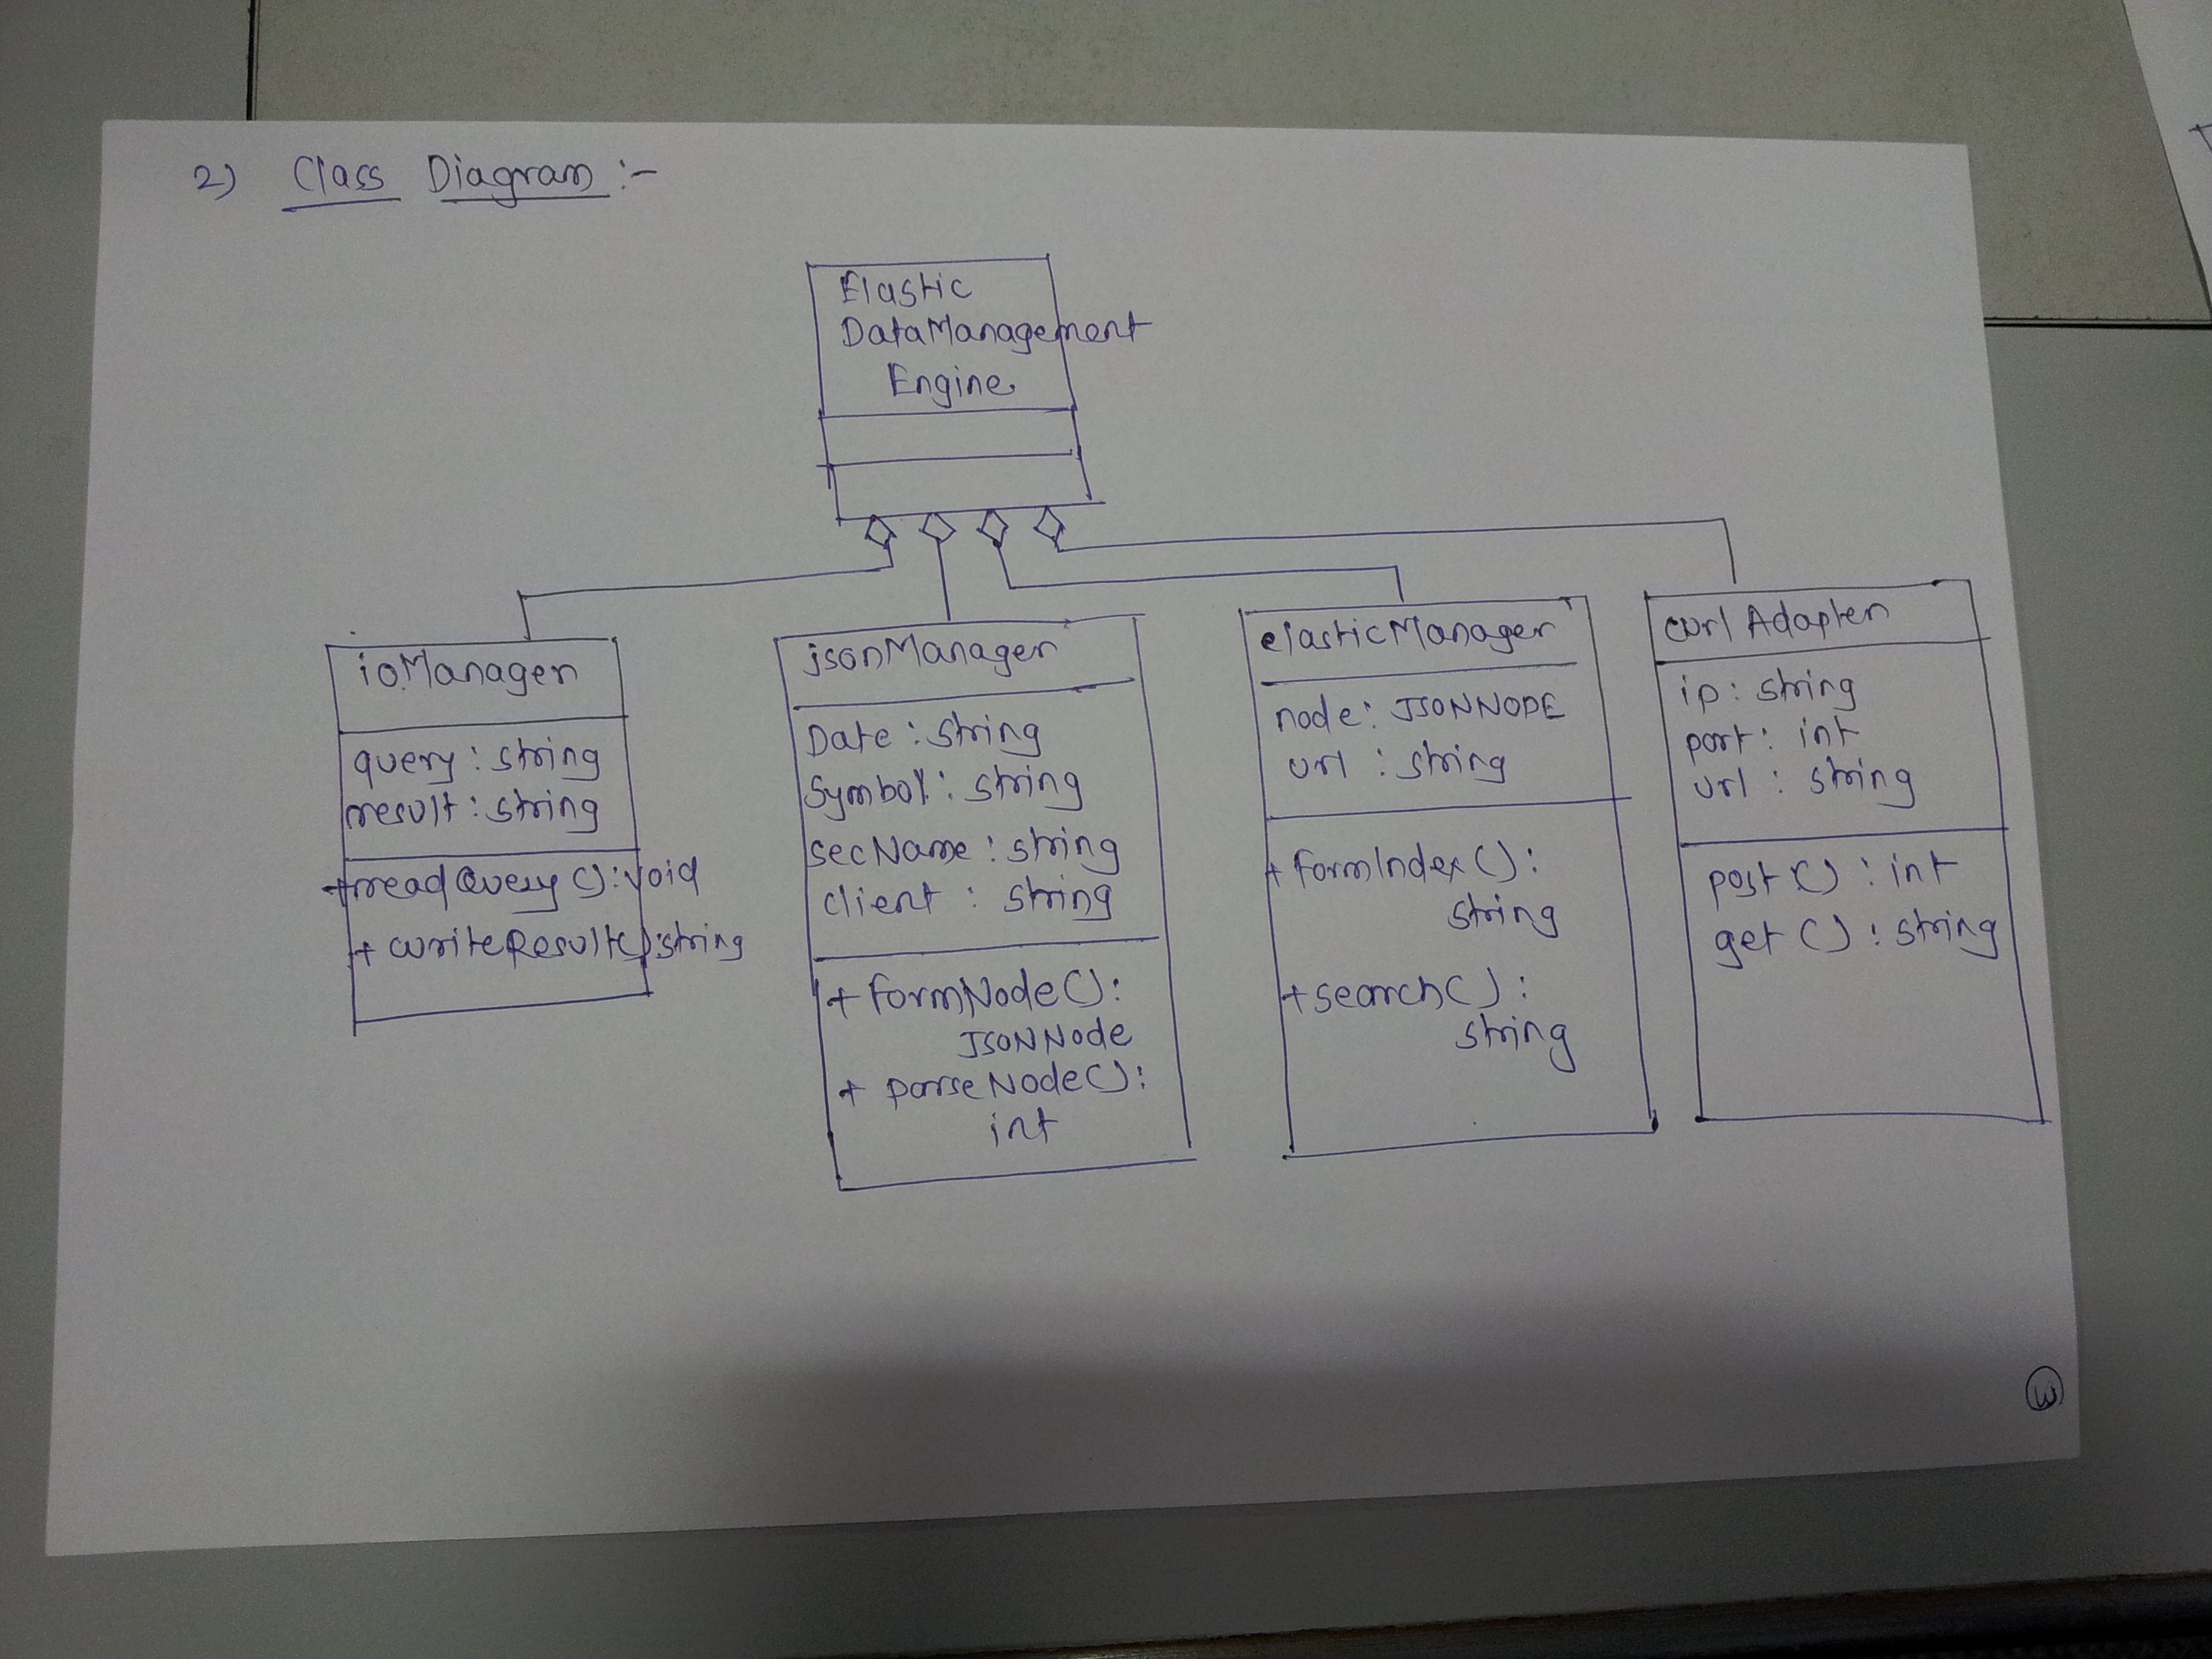 2) Class Diagram :-
Elastic
DataManagement
Engine
ioManager
query : string
result : string
+readQuery() : void
+ writeResult() : string
jsonManager
Date : string
Symbol : string
secName : string
client : string
+ formNode() :
JSONNode
+ parseNode() :
int
elasticManager
node : JSONNODE
url : string
+ formIndex() :
string
+ search() :
string
curl Adapter
ip : string
port : int
url : string
post() : int
get() : string